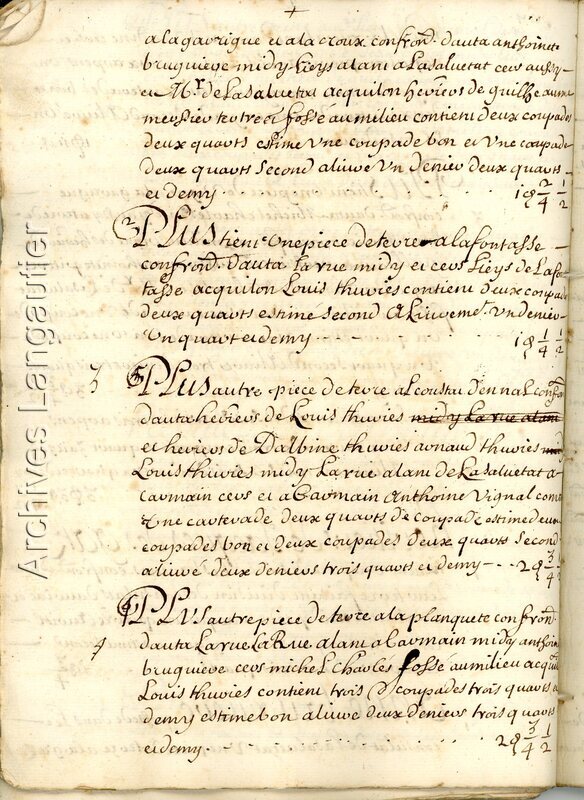 +
a la garrigue et a la croux confron.t d'auta anthoinete
bruguiere midy lieys alant a La saluetat cers aussy
et M.r de La saluetat acquilon heireros de guilheaume
messier terre et fossé au milieu contient deux coupades
deux quarts estimé une coupade bon et une coupade
deux quarts second alivré un denier deux quarts
et demy 1 d 2/4 1/2
2 PLus tient une piece de terre a la fontasse
confron.t d'auta la rue midy et cers lieys de Lafo
tasse acquilon Louis thuries contient deux coupade
deux quarts estimé second aLivreme.t un denier
un quart et demy 1 d 1/4 1/2
3 PLus autre piece de terre aL coustat d'en naL confro
d'auta heireros de Louis thuries midy La rue alant
et heireros de Dalbine thuries arnaud thuries
Louis thuries midy La rue alant de La saluetat a
carmain cers et a Carmain Anthoine Vignal cont
une carterade deux quarts de coupade estimé deux
coupades bon et deux coupades deux quarts second
alivré deux deniers trois quarts et demy 2 d 3/4 1/2
4 PLUS autre piece de terre a la planquete confron.t
d'auta La rue La Rue alant a Carmain midy anthoin
bruguiere cers micheL Charles fossé au milieu acqui
Louis thuries contient trois coupades trois quarts e
demy estimé bon alivré deux deniers trois quarts
et demy 2 d 3/4 1/2
Archives Langautier